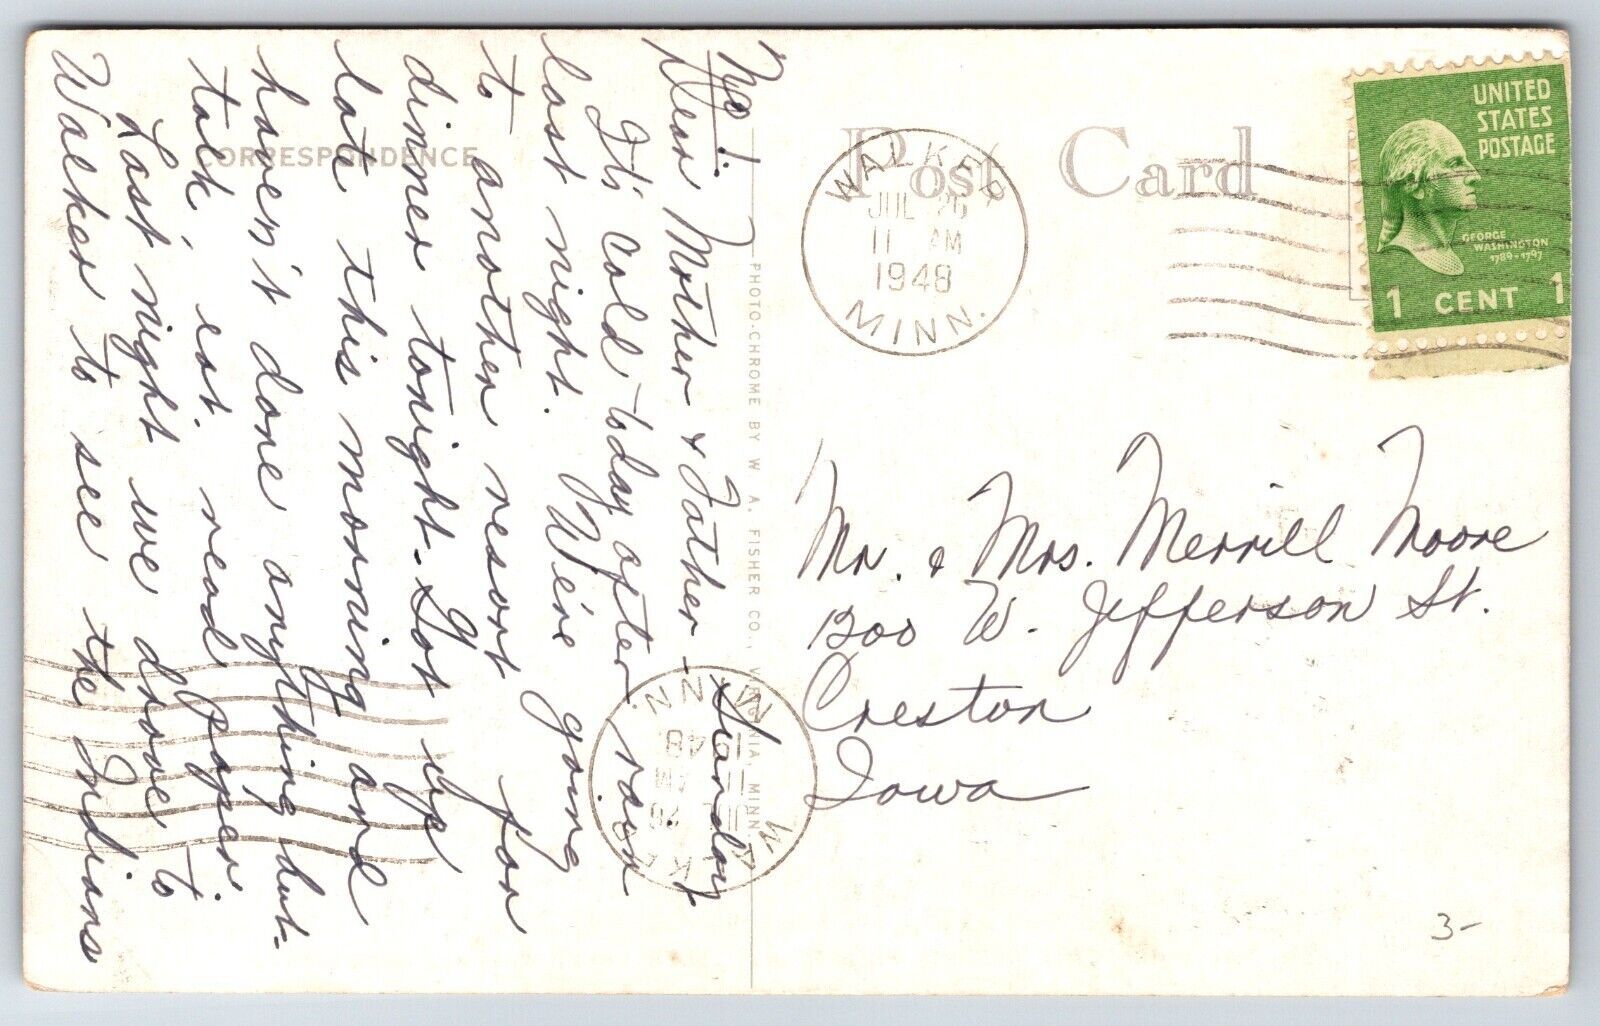 No 1.
Dear Mother & Father - Sunday
It's cold today after rain
last night. We're going
to another resort for
dinner tonight. Got up
late this morning and
haven't done anything but-
talk, eat. read paper
Last night we drove to
Walker to see the Indians
CORRESPONDENCE
PHOTO-CHROME BY W. A. FISHER CO., VIRGINIA, MINN.
Post Card
WALKER
JUL 26
11 AM
1948
MINN.
UNITED
STATES
POSTAGE
GEORGE
WASHINGTON
1789-1797
1 CENT 1
Mr. & Mrs. Merrill Moore
1200 W. Jefferson St.
Creston
Iowa
3-